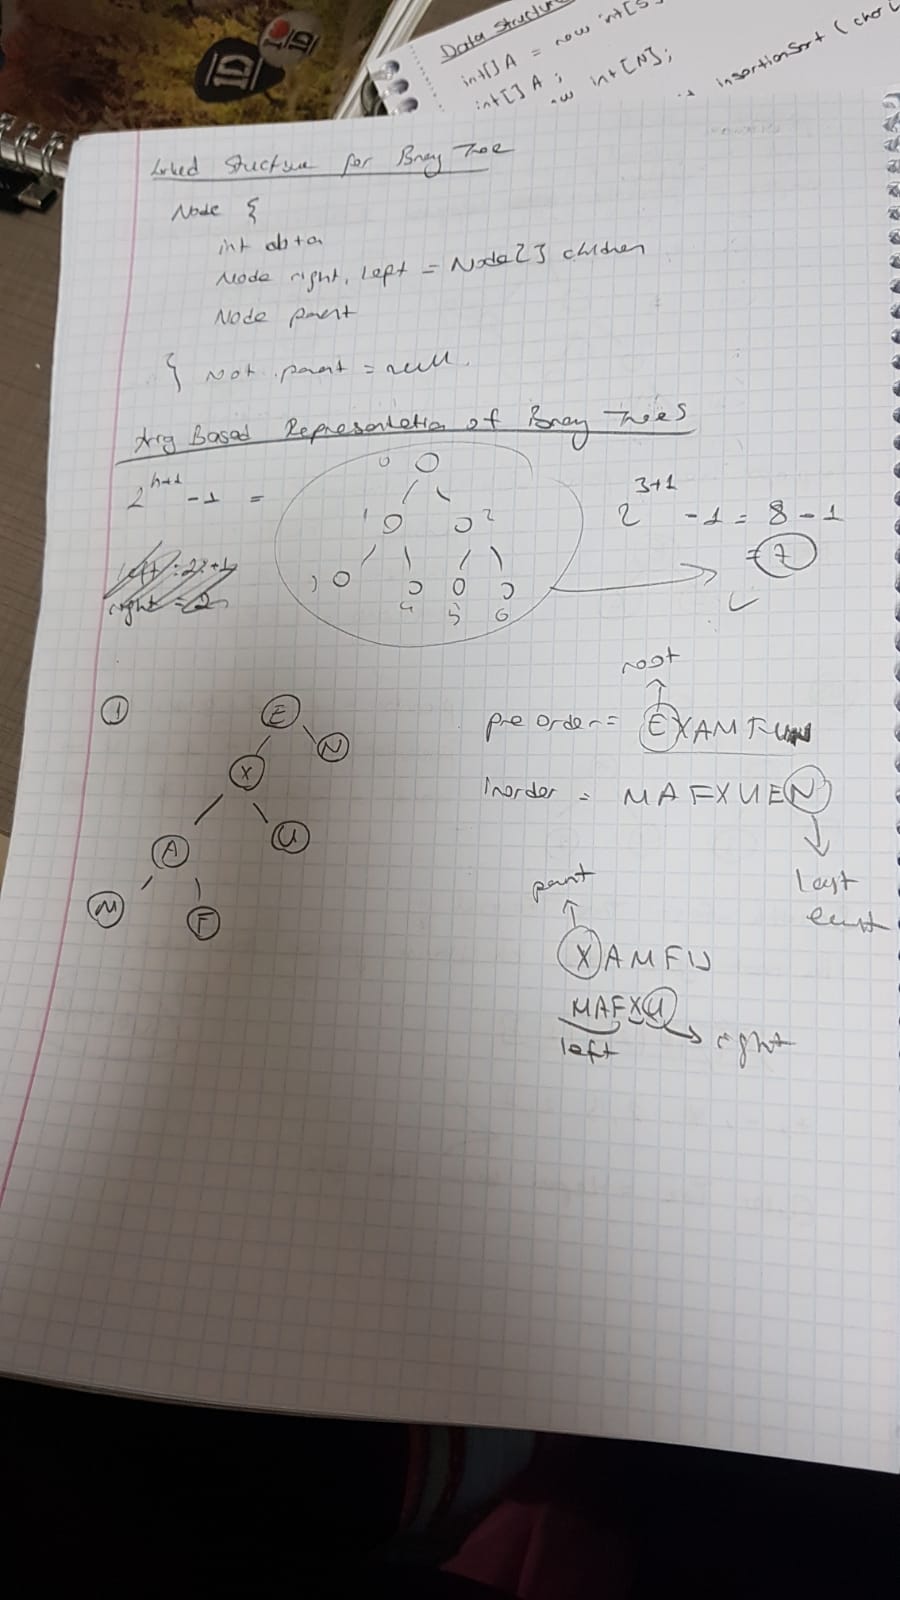 Data Structure
int[] A = new int[5
int[] A ;
int [N];
insertionSort ( char
1D
I 1D
Linked Structure for Binary Tree
Node {
int data
Node right, left = Node[] children
Node parent
} parent = null.
Array Based Representation of Binary Trees
2^h+1 - 1 =
0
1 2
3
4 5 6
2^3+1 - 1 = 8 - 1
= 7
left : 2i+1
right = 2
1
E
N
X
A
U
M
F
root
pre order = EXAMFUN
Inorder = MAFXUEN
last
parent
XAMFU
MAFXU
left
right